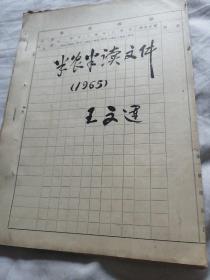 半农半读文件
(1965)
王文运